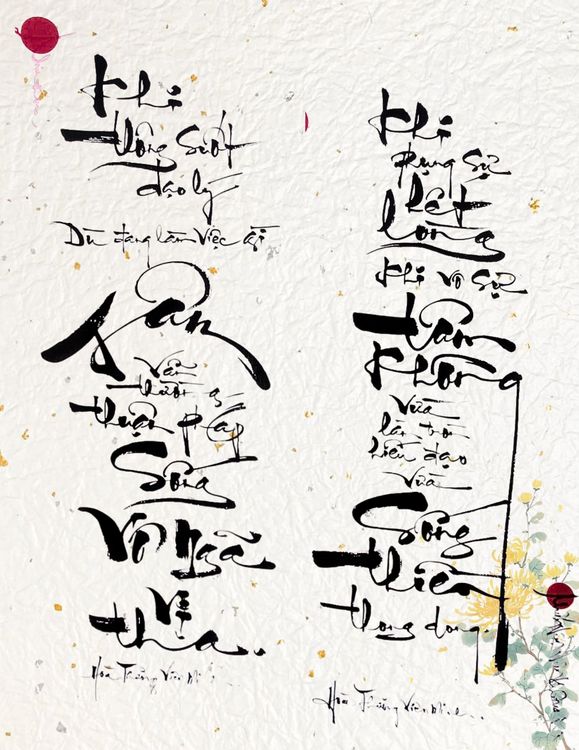 Khi
thông suốt
đạo lý
Dù đang làm việc gì
Tâm
Vẫn
thường
thuận pháp
Sống
Vô ngã
Vị
tha.
Hoà Thượng Viên Minh
Khi
Đụng sự
hết
lòng
Khi vô sự
tâm
không
Vừa
làm tròn
hiếu đạo
Vừa
Sống
thiền
thong dong.
Hoà Thượng Viên Minh